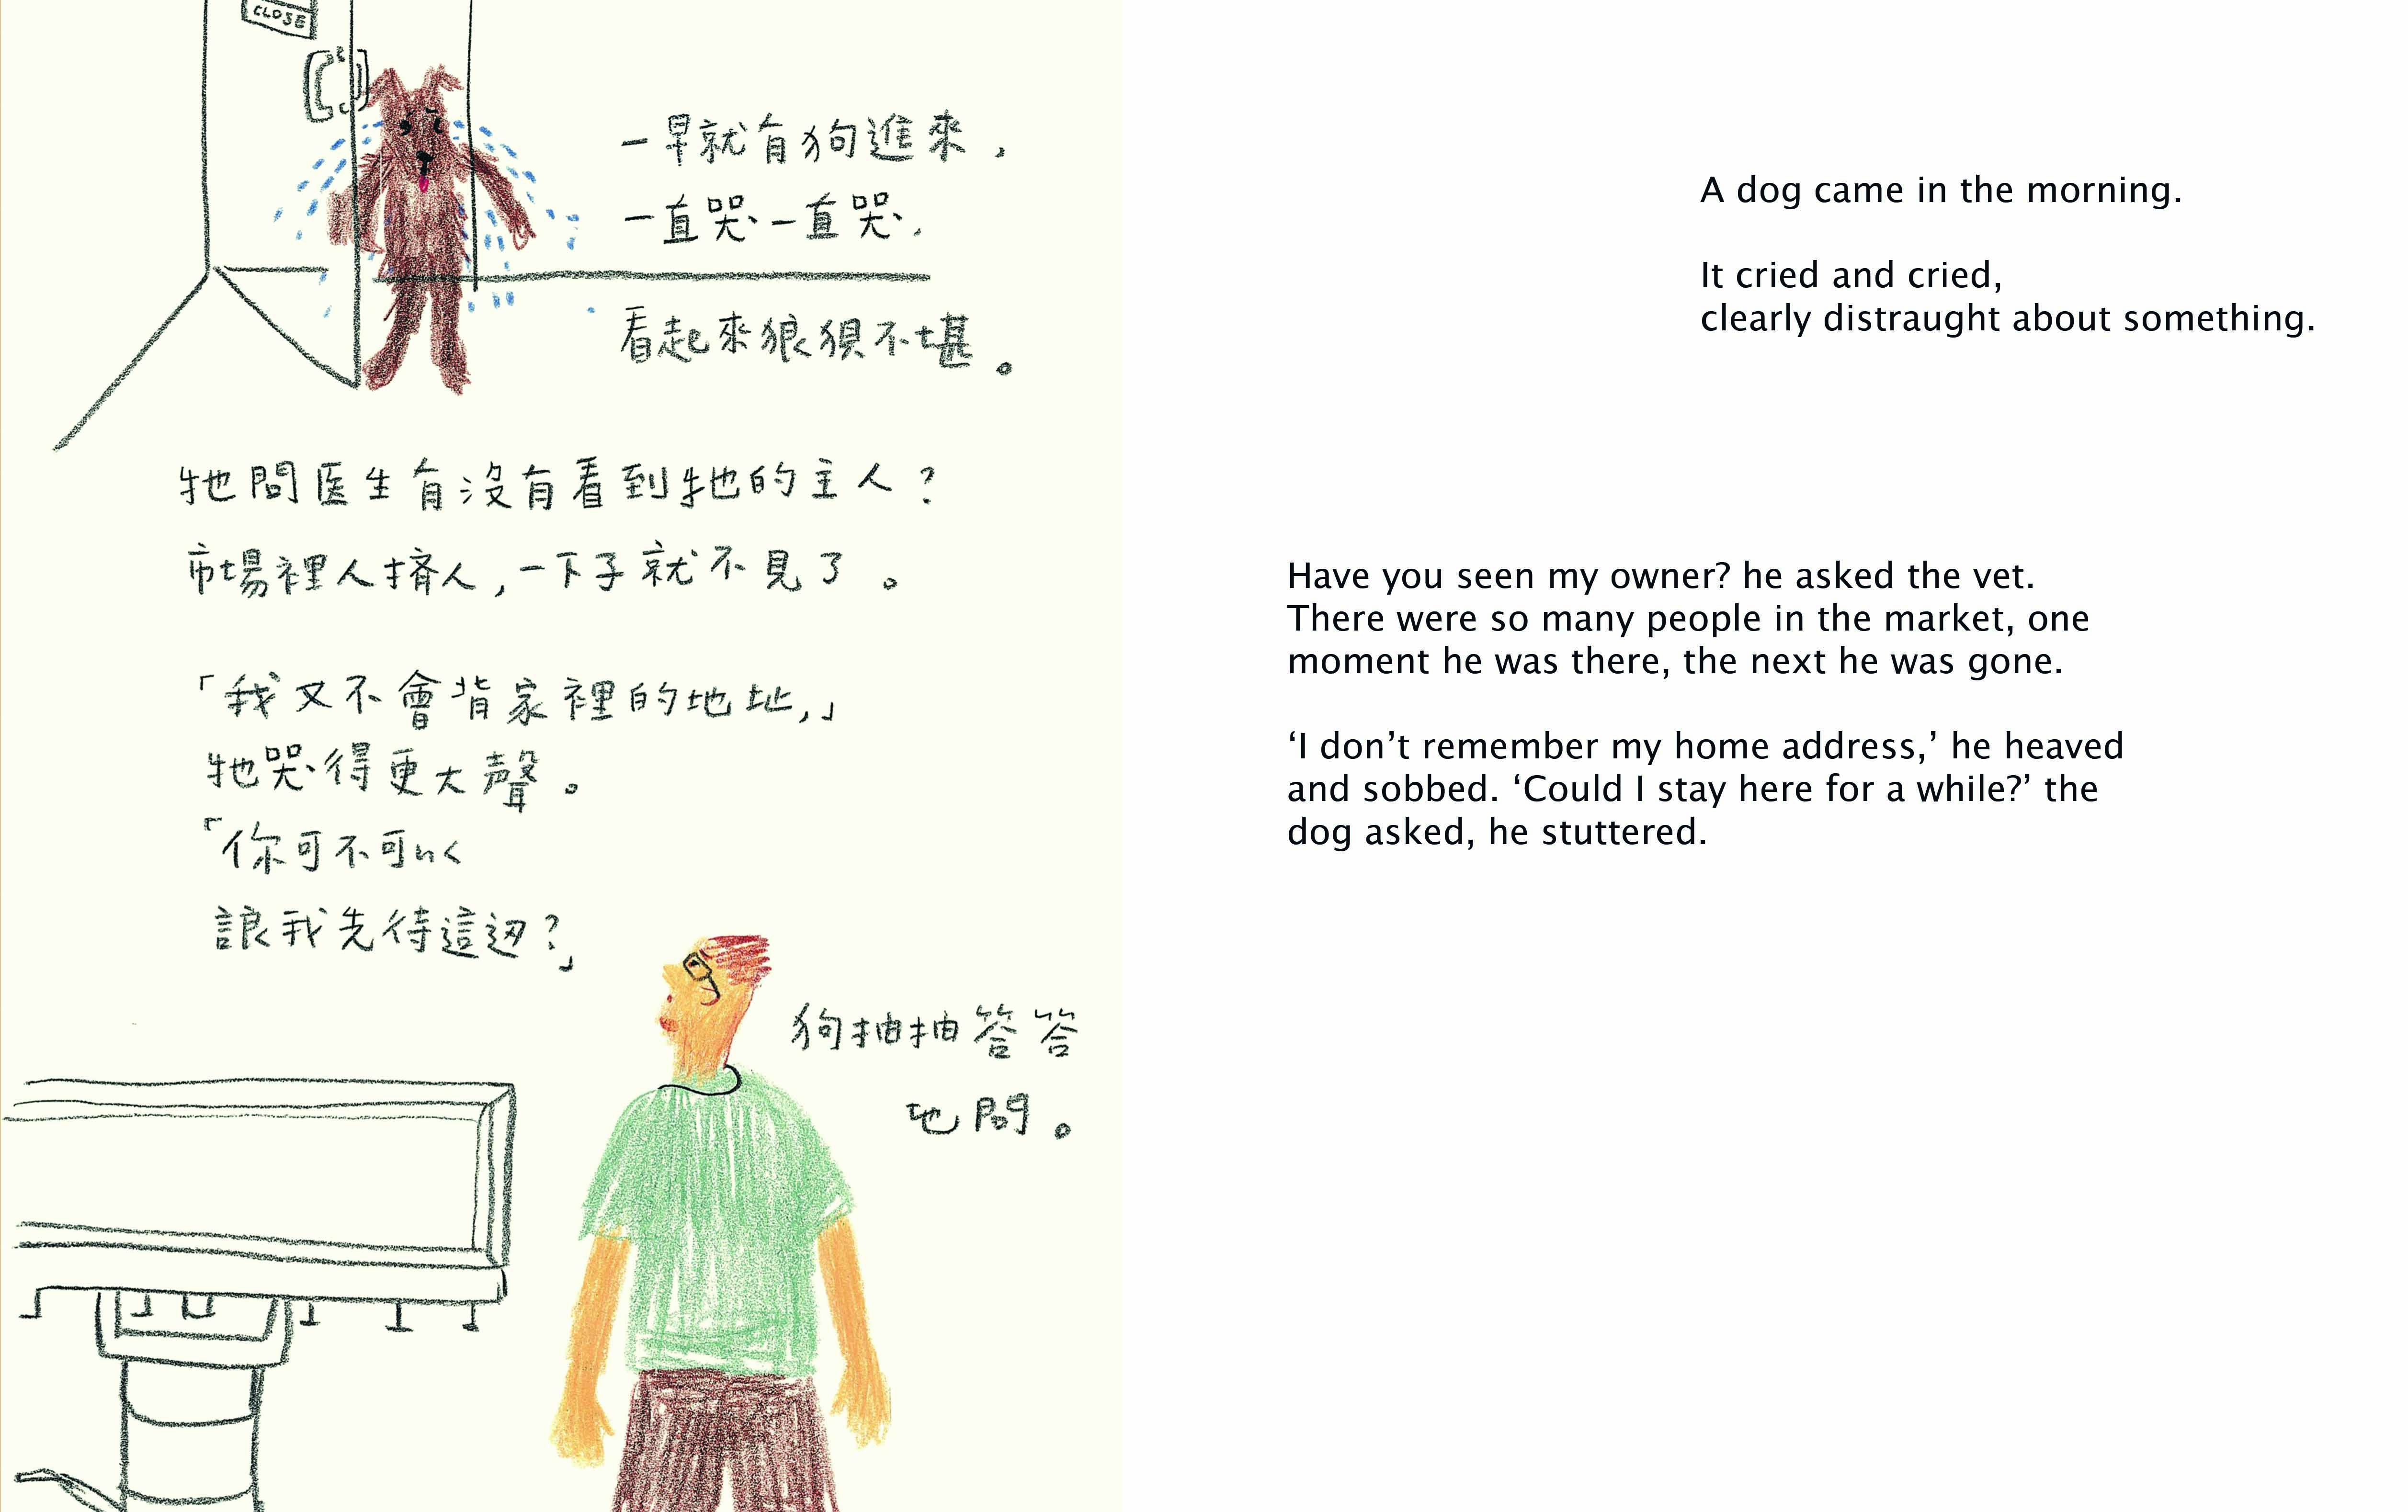 CLOSE
一早就有狗進來，
一直哭一直哭，
看起來狼狽不堪。
牠問医生有沒有看到牠的主人？
市場裡人擠人，一下子就不見了。
「我又不會背家裡的地址，」
牠哭得更大聲。
「你可不可以
讓我先待這边？」
狗抽抽答答
地問。
A dog came in the morning.
It cried and cried,
clearly distraught about something.
Have you seen my owner? he asked the vet.
There were so many people in the market, one
moment he was there, the next he was gone.
‘I don’t remember my home address,’ he heaved
and sobbed. ‘Could I stay here for a while?’ the
dog asked, he stuttered.